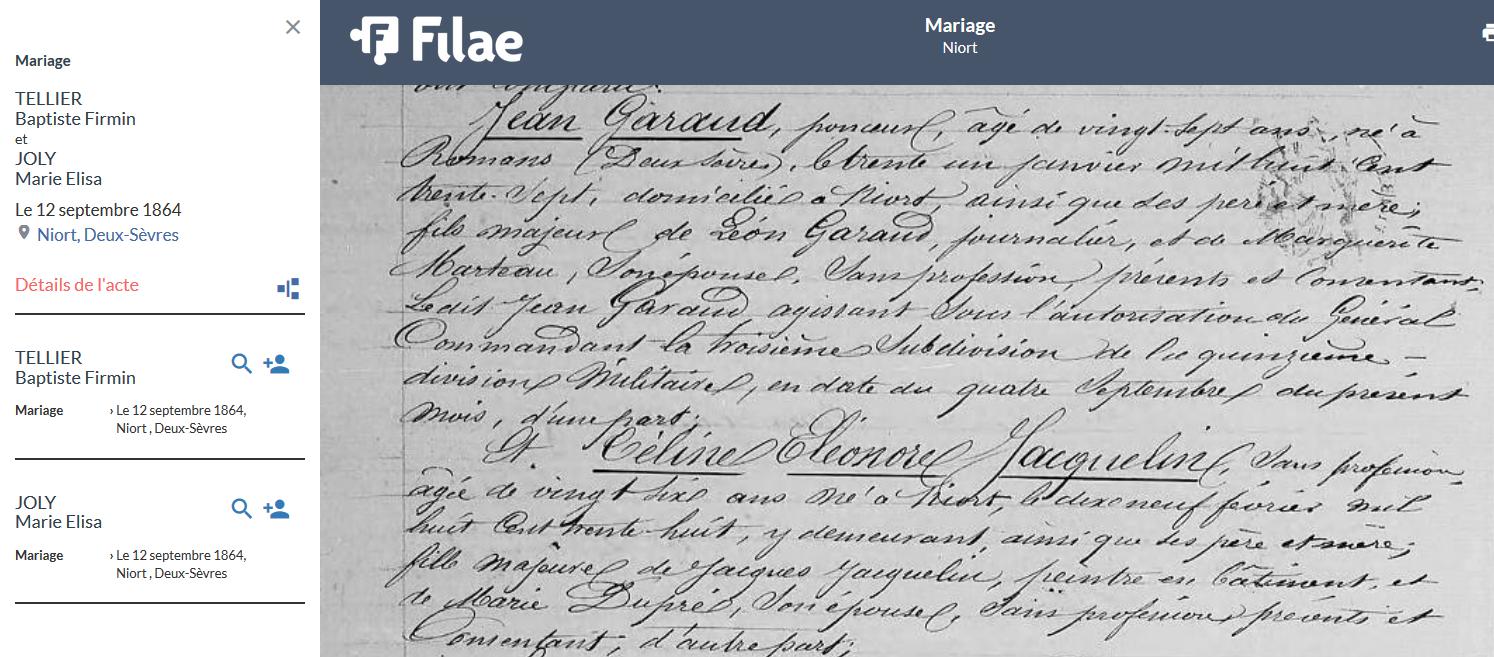 Mariage
TELLIER
Baptiste Firmin
et
JOLY
Marie Elisa
Le 12 septembre 1864
Niort, Deux-Sèvres
Détails de l'acte
TELLIER
Baptiste Firmin
Mariage › Le 12 septembre 1864,
Niort , Deux-Sèvres
JOLY
Marie Elisa
Mariage › Le 12 septembre 1864,
Niort , Deux-Sèvres
Filae
Mariage
Niort
Jean Garaud, ponceur, âgé de vingt-sept ans, né à
Romans (Deux Sèvres), le trente un janvier mil huit Cent
trente-Sept, domicilié à Niort, ainsi que ses père et mère;
fils majeur de Léon Garaud, journalier, et de Marguerite
Marteau, Son épouse, Sans profession, présents et Consentant.
Ledit Jean Garaud agissant Sous l'autorisation du Général
Commandant la troisième Subdivision de la quinzième
division Militaire, en date du quatre Septembre du présent
mois, d'une part;
Et Céline Eléonore Jacquelin, Sans profession
agée de vingt six ans né à Niort, le dix neuf février mil
huit Cent trente-huit, y demeurant, ainsi que ses père et mère;
fille majeure de Jacques Jacquelin, peintre en bâtiment, et
de Marie Dupré, Son épouse, Sans profession présents et
Consentant, d'autre part;